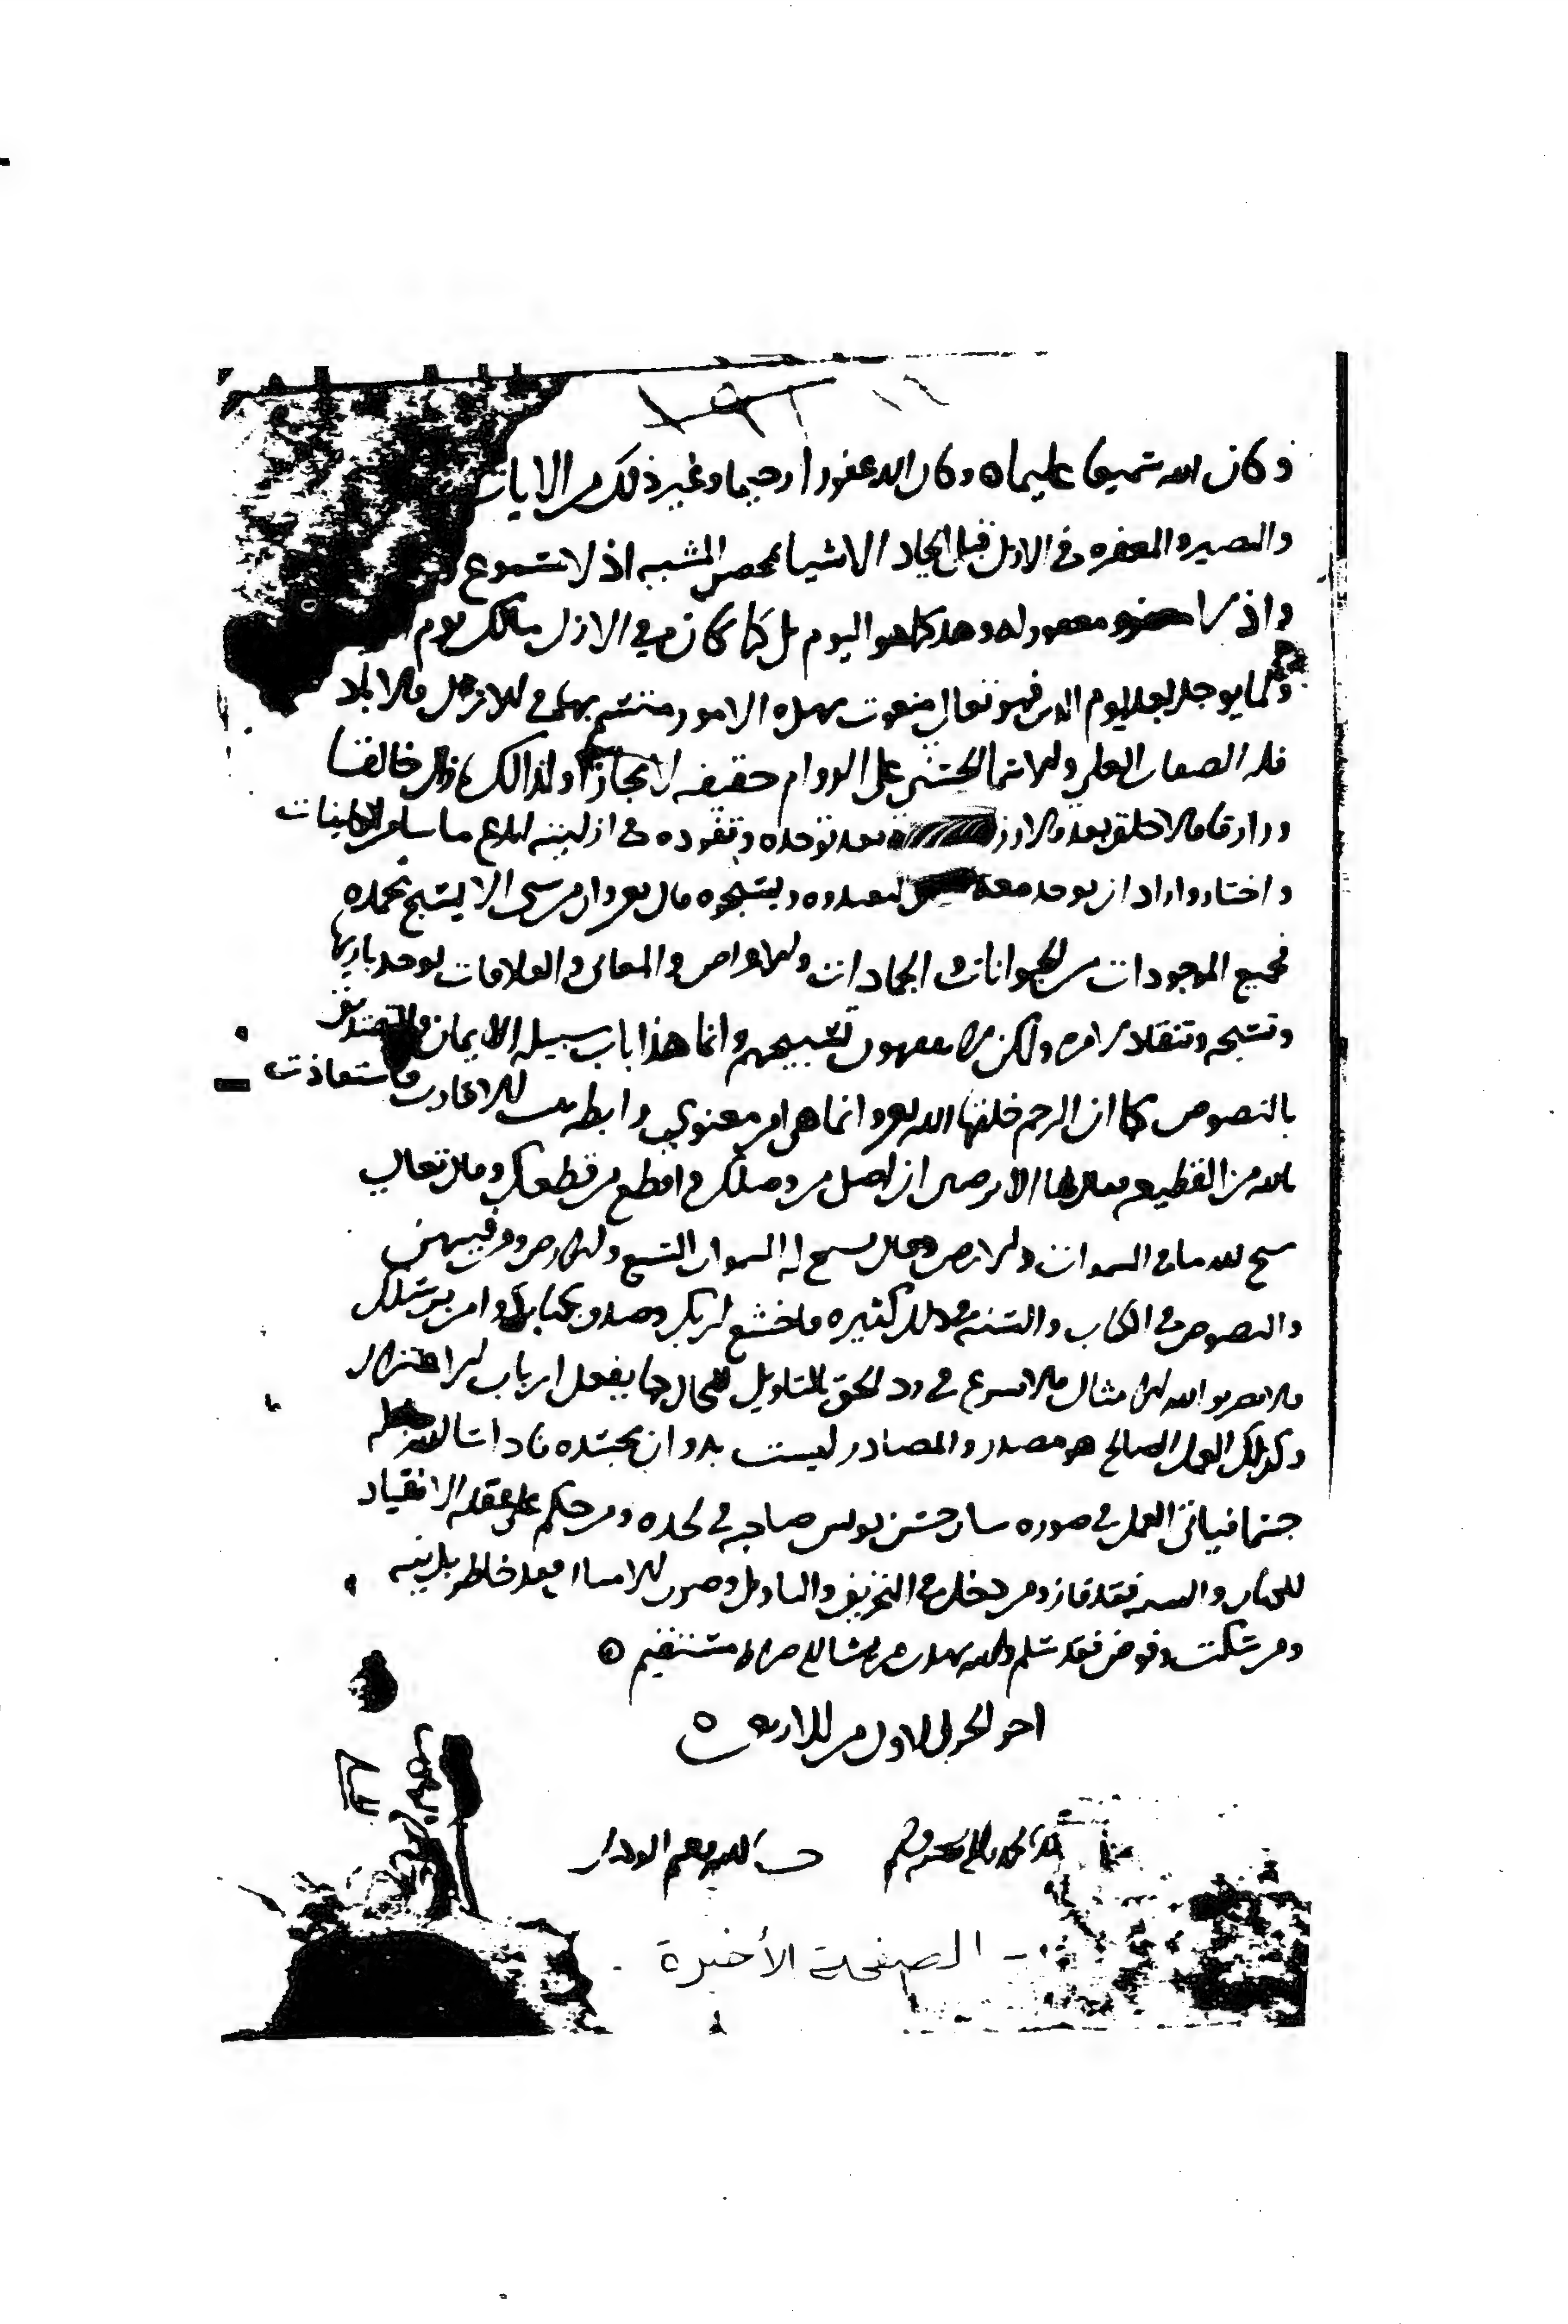 وكان الله سميعا عليما ه وكان الله غفورا رحيما وغير ذلك من الايات
والبصير والمغفره في الازل قبل ايجاد الاشيا محض المشبه اذ لا مسموع
واذ لا مغفور له وهو كما هو اليوم بل كما كان في الازل مالك يوم
وكما يوجد بعد اليوم فهو تعالى منعوت بهذه الامور متسم بها في الازل والاباد
فله الصفات العلى والاسما الحسنى على الدوام حقيقه لا مجازا ولذالك خالقا
ورازقا ولا خلق بعد ولا رزق بعد توحده وتفرده في ازليته ابدع ساير الكاينات
واختار واراد ان يوحد معه ليعبدوه ويسبحوه قال تعالى وان من شي الا يسبح بحمده
فجميع الموجودات من الحيوانات والجمادات والاعراض والمعاني والعلاقات توحد باريها
وتسبحه وتنقاد لامره ولكن لا تفقهون تسبيحهم وانما هذا باب سبيله الايمان والتصديق
بالنصوص كما ان الرحم خلقها الله تعالى وانما هي امر معنوي رابطه بين الاقارب فاستعاذت
بالله من القطيعه فقال لها الا ترضين ان اصل من وصلك واقطع من قطعك وقال تعالى
سبح لله ما في السموات والارض وقال تسبح له السموات السبع والارض ومن فيهن
والنصوص في الكتاب والسنه في ذلك كثيره فاخشع لربك وصدق بكتابك وامن برسلك
فلا تضربوا لله الامثال ولا تسرع في رد الحق بالتاويل المحال كما يفعل ارباب الاعتزال
وكذلك العمل الصالح هو مصدر والمصادر ليست بذوات مجسده فاذا شا الله جعله
جسما فياتي العمل في صوره شاب حسن يونس صاحبه في لحده ومن حكم على عقله الانقياد
للكتاب والسنه فقد فاز ومن دخل في التحريف والتاويل وضرب الامثال فقد خاطر بدينه
ومن سكت وفوض فقد سلم والله يهدي من يشا الى صراط مستقيم
اخر الجزء الاول من الاربعين
حسبنا الله ونعم الوكيل
- الصفحة الأخيرة -